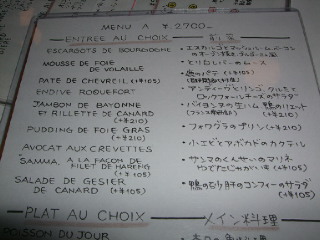 MENU A ¥2700-
ENTREE AU CHOIX 前菜
ESCARGOTS DE BOURGOGNE
・エスカルゴとマッシュルーム、ベーコンの
MOUSSE DE FOIE DE VOLAILLE
・とりレバーのムース
PATE DE CHEVREIL (+¥105)
(+¥105)
ENDIVE ROQUEFORT
・アンディーブとリンゴ、クルミと
ロックフォールチーズのサラダ
JAMBON DE BAYONNE
ET RILLETTE DE CANARD
(+¥210)
・バイヨンヌの生ハムと鴨のリエット
(+¥210)
PUDDING DE FOIE GRAS
(+¥210)
・フォワグラのプリン(+¥210)
AVOCAT AUX CREVETTES
・小エビとアボカドのカクテル
SAMMA, A LA FACON DE
FILET DE HARENG
(+¥105)
・サンマのくんせいのマリネ
(+¥105)
SALADE DE GESIER
DE CANARD (+¥105)
・鴨の砂肝のコンフィーのサラダ
(+¥105)
PLAT AU CHOIX メイン料理
POISSON DU JOUR